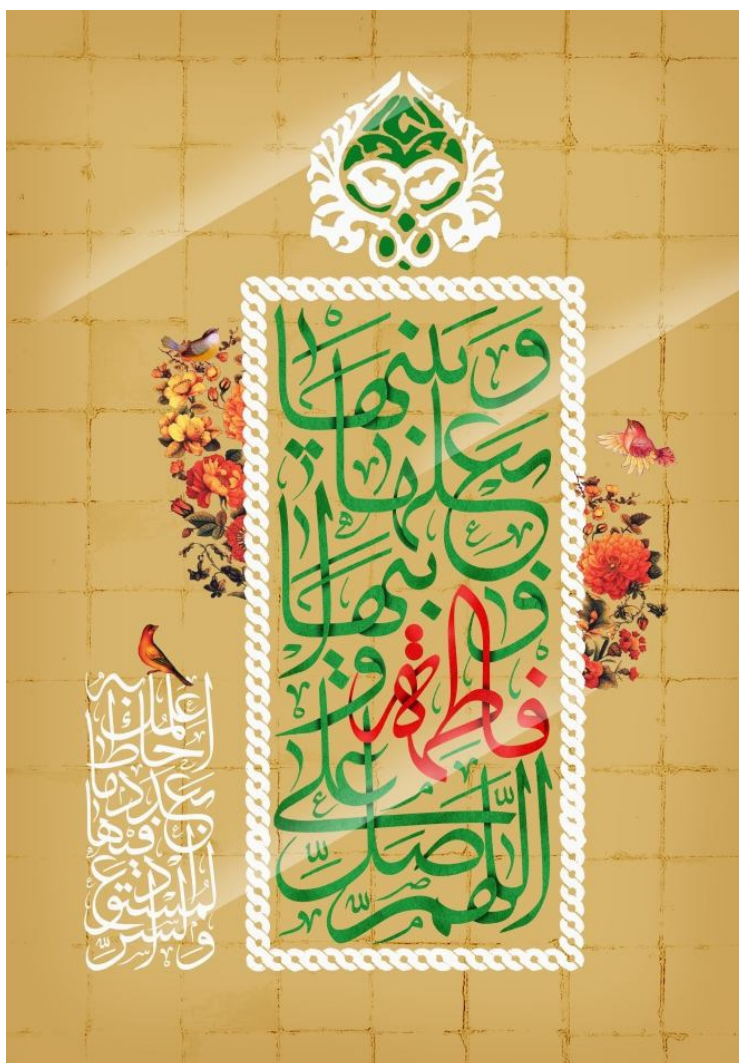 اللّهمّ صلّ
على
فاطمة و
ابيها و
بعلها
و بنيها
و السرّ
المستودع
فيها
بعدد ما
احاط
به علمك